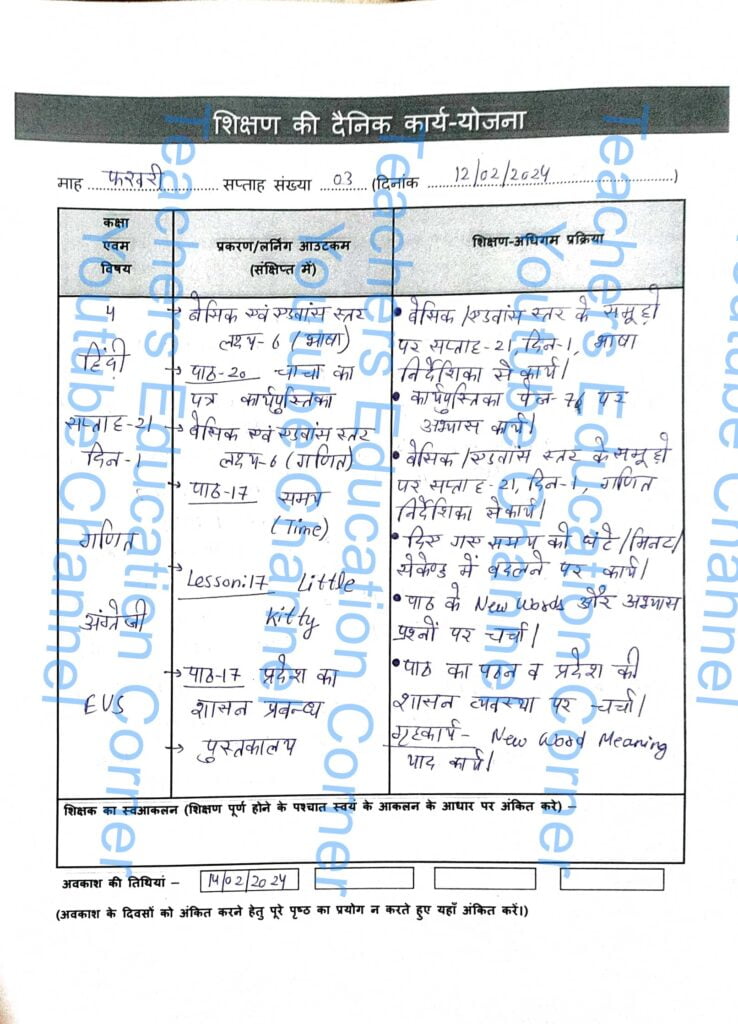 शिक्षण की दैनिक कार्य-योजना
माह फरवरी सप्ताह संख्या 03 (दिनांक 12/02/2024)
कक्षा
एवम
विषय
प्रकरण/लर्निंग आउटकम
(संक्षिप्त में)
शिक्षण-अधिगम प्रक्रिया
4
हिंदी
सप्ताह-21
दिन-1
गणित
अंग्रेजी
EVS
→ बेसिक एवं एडवांस स्तर
लक्ष्य-6 (भाषा)
→ पाठ-20 चाचा का
पत्र कार्यपुस्तिका
→ बेसिक एवं एडवांस स्तर
लक्ष्य-6 (गणित)
→ पाठ-17 समय
(Time)
Lesson:17 Little
Kitty
→ पाठ-17 प्रदेश का
शासन प्रबन्ध
→ पुस्तकालय
• बेसिक/एडवांस स्तर के समूहों
पर सप्ताह-21, दिन-1, भाषा
निर्देशिका से कार्य।
• कार्यपुस्तिका पेज-76 पर
अभ्यास कार्य।
• बेसिक/एडवांस स्तर के समूहों
पर सप्ताह-21, दिन-1, गणित
निर्देशिका से कार्य।
• दिए गए समय को घंटे/मिनट/
सेकेण्ड में बदलने पर कार्य।
• पाठ के New Words और अभ्यास
प्रश्नों पर चर्चा।
• पाठ का पठन व प्रदेश की
शासन व्यवस्था पर चर्चा।
गृहकार्य- New Word Meaning
याद कार्य।
शिक्षक का स्वआकलन (शिक्षण पूर्ण होने के पश्चात स्वयं के आकलन के आधार पर अंकित करे) –
अवकाश की तिथियां – 14/02/2024
(अवकाश के दिवसों को अंकित करने हेतु पूरे पृष्ठ का प्रयोग न करते हुए यहाँ अंकित करें।)
Teachers Education Corner
Youtube Channel
Teachers Education Corner
Youtube Channel
Teachers Education Corner
Youtube Channel